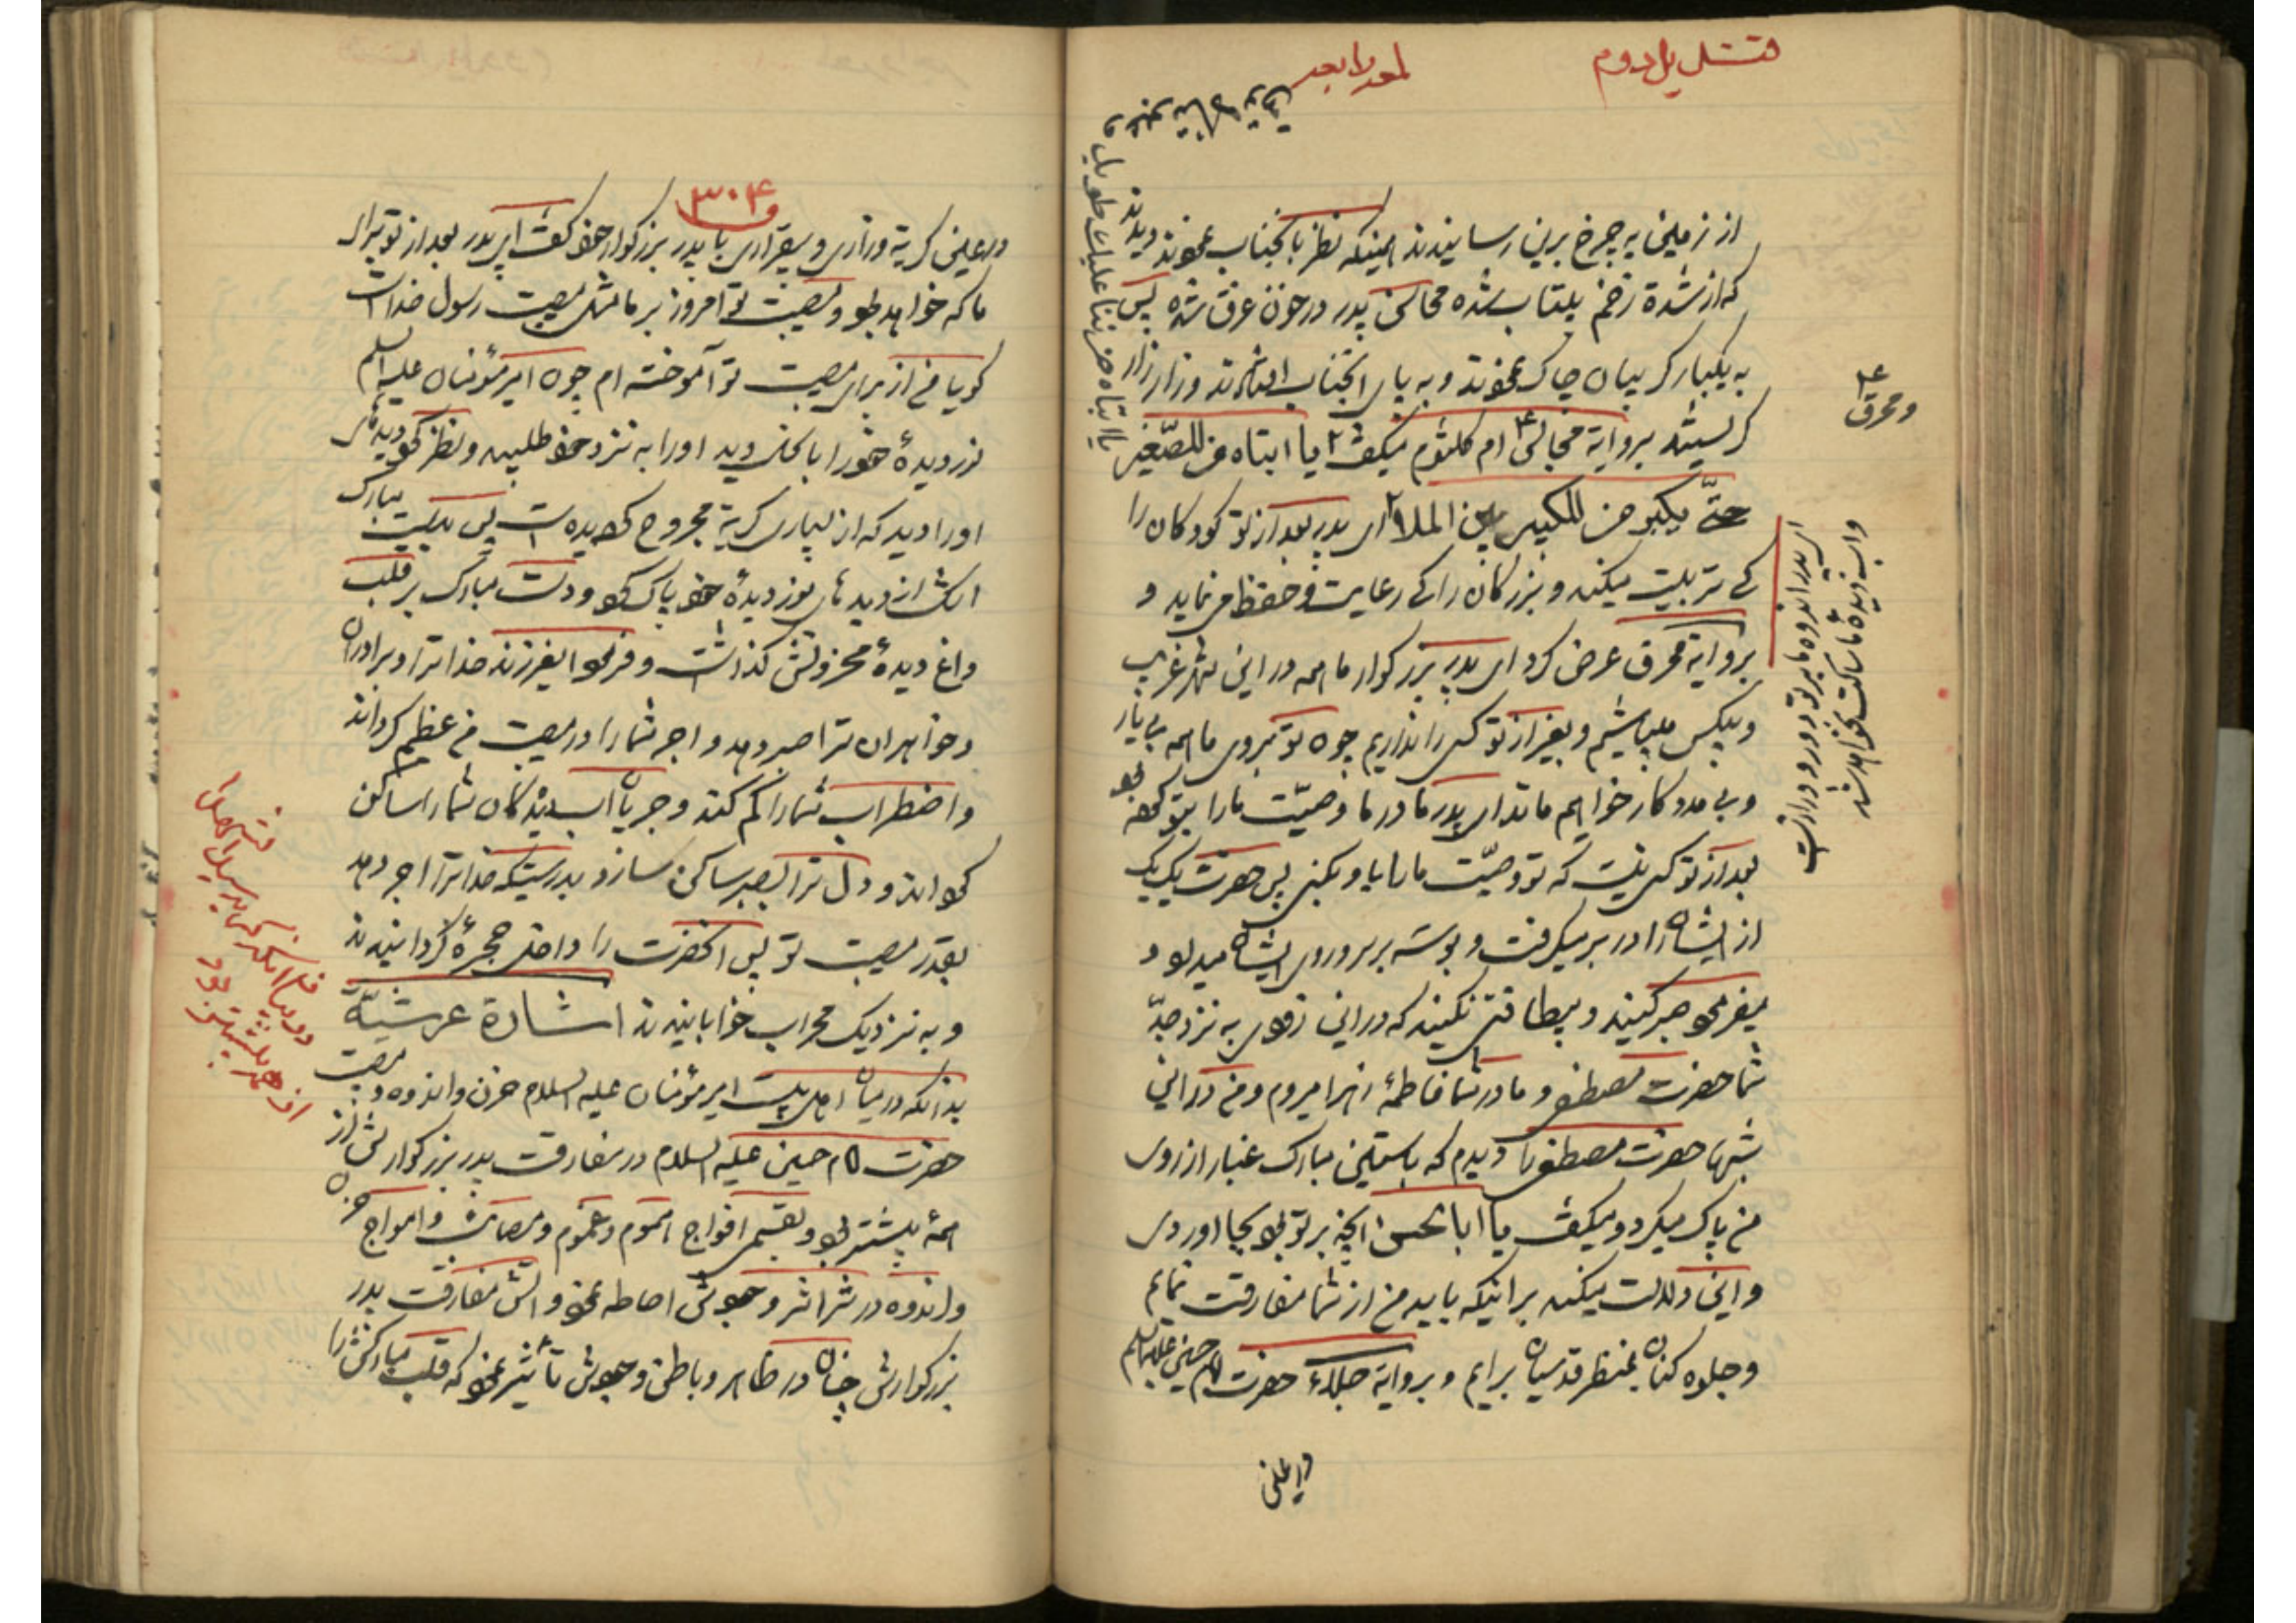 از زمین به چرخ برین رسانیدند همینکه نظر بآنجناب نمودند دیدند
که از شدة زخم بیتاب شده محاسن پدر در خون غرق شده پس
به یکبار گریبان چاک نمودند و به پای آنجناب افتادند و زار زار
گریستند بروایة مجالس ام کلثوم میگفت یا ابتاه من للصّغیر
حتّی یکبر و من للکبیر بین الملاء ای پدر بعد از تو کودکان را
که تربیت میکند و بزرگان را که رعایت و حفظ مینماید و
بروایة محرق عرض کرد ای پدر بزرگوار ما همه در این شهر غریب
و بیکس میباشیم و بغیر از تو کسی را نداریم چون تو بروی ما همه بی یار
و بی مددکار خواهیم ماند ای پدر مادر ما وصیّت ما را بتو نمود
بعد از تو کسی نیست که تو وصیّت ما را باو بکنی پس حضرت یک یک
از ایشان را در بر میگرفت و بوسه بر سر و روی ایشان میداد و
میفرمود صبر کنید و بیطاقتی نکنید که در این زودی به نزد جدّ
شما حضرت مصطفی و مادر شما فاطمهٔ زهرا میروم و من در این
شبها حضرت مصطفی را دیدم که باستین مبارک غبار از روی
من پاک میکرد و میگفت یا ابا الحسن انچه بر تو بود بجا اوردی
و این دلالت میکند بر اینکه باید من از شما مفارقت نمایم
و جلوه کنان بمنظر قدسیان برایم و بروایة جلاء حضرت امام حسین علیه السلام
در عین
و محرق
ای پدر اندوه ما بر تو دور و دراز است
واب دیده ما ساکت نخواهد شد
یا ابتاه حزننا علیک طویل و
۳۰۴
در عین گریه و زاری و بیقراری با پدر بزرگوار خود گفت ای پدر بعد از تو برای
ما که خواهد بود و مصیبت تو امروز بر ما مثل مصیبت رسول خداست
گویا من از برای مصیبت تو آموخته ام چون امیر مؤمنان علیه السلام
نور دیدهٔ خود را بانحال دید او را به نزد خود طلبید و نظر نمود دیده های
او را دید که از بسیاری گریه مجروح گردیده است پس بدست مبارک
اشک از دیده های نور دیدهٔ خود پاک نمود و دست مبارک بر قلب
داغ دیدهٔ محزونش گذاشت و فرمود ایفرزند خدا ترا و برادران
و خواهران ترا صبر دهد و اجر شما را در مصیبت من عظیم گرداند
و اضطراب شما را کم کند و جریان اب دیدگان شما را ساکن
گرداند و دل ترا بصبر ساکن سازد بدرستیکه خدا ترا اجر دهد
بقدر مصیبت تو پس انحضرت را داخل حجرهٔ گردانیدند
و به نزدیک محراب خوابانیدند اشارة عرشیّة
بدانکه در میان اهل بیت امیر مؤمنان علیه السلام حزن و اندوه و مصیبت
حضرت امام حسین علیه السلام در مفارقت پدر بزرگوارش از
همه بیشتر بود و بقسمی افواج هموم و غموم و مصائب و امواج حزن
و اندوه در شراشر وجودش احاطه نمود و اتش مفارقت پدر
بزرگوارش چنان در ظاهر و باطن وجودش تأثیر نمود که قلب مبارکش را